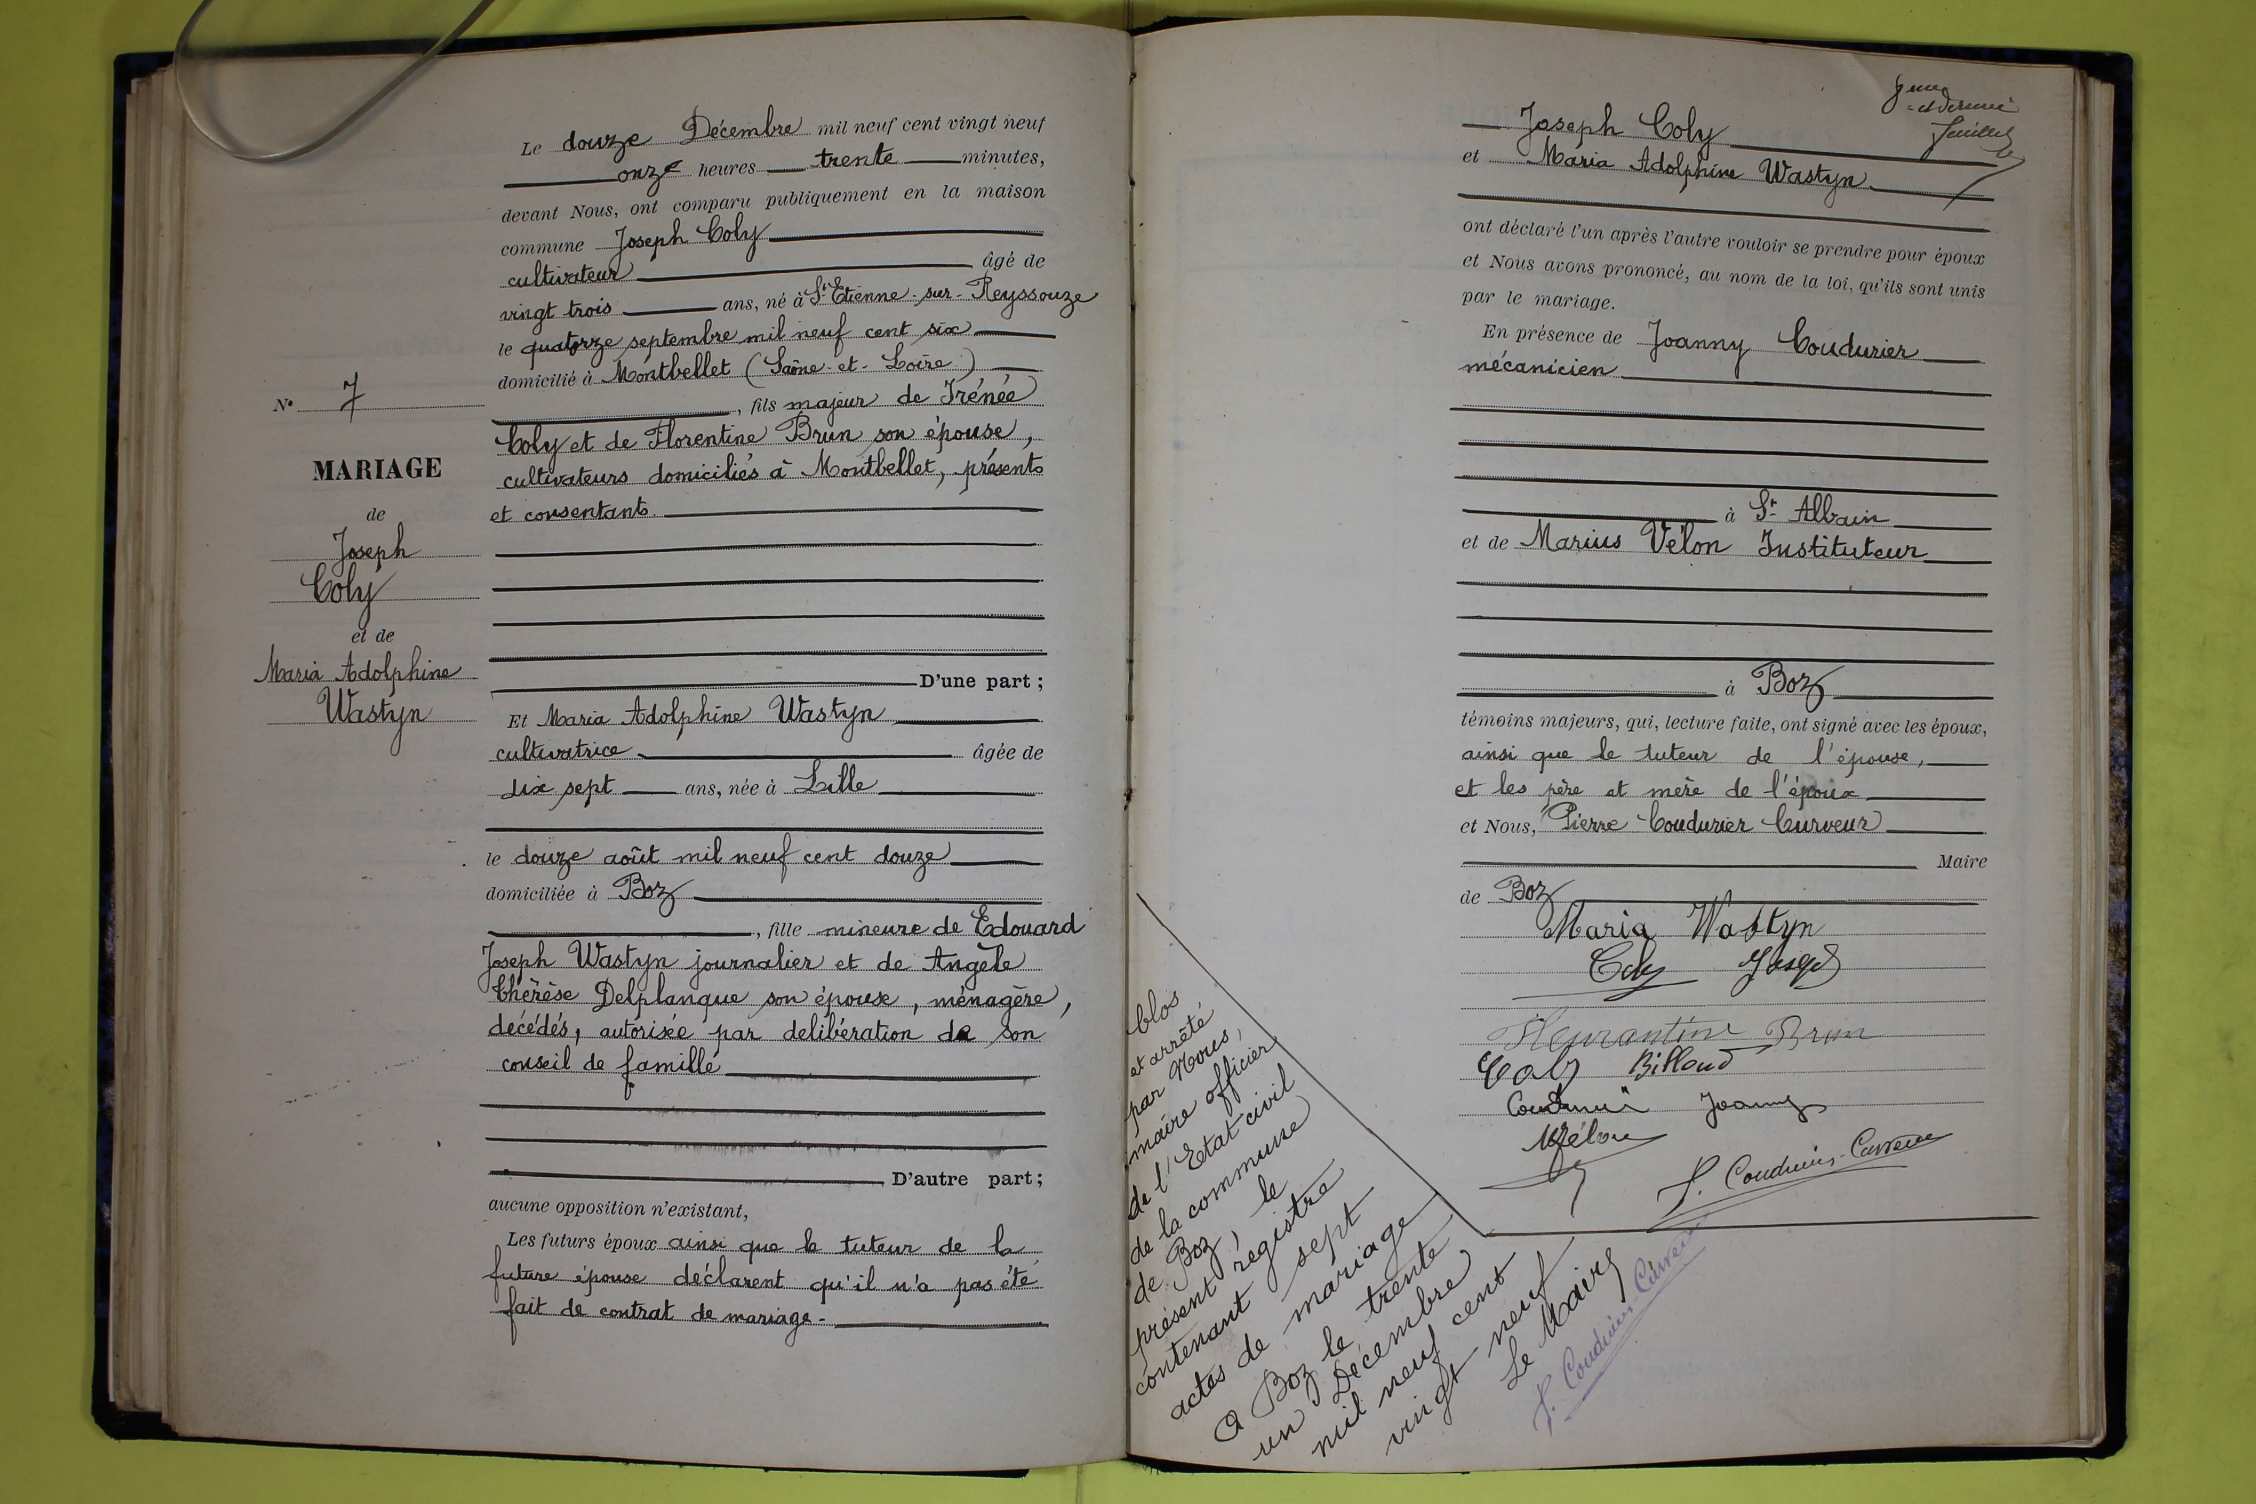 N° 7
MARIAGE
de
Joseph
Coly
et de
Maria Adolphine
Wastyn
Le douze Décembre mil neuf cent vingt neuf
onze heures trente minutes,
devant Nous, ont comparu publiquement en la maison
commune Joseph Coly
cultivateur âgé de
vingt trois ans, né à St Etienne-sur-Reyssouze
le quatorze septembre mil neuf cent six
domicilié à Montbellet (Saône-et-Loire)
, fils majeur de Irénée
Coly et de Florentine Brun son épouse,
cultivateurs domiciliés à Montbellet, présents
et consentants.
D'une part ;
Et Maria Adolphine Wastyn
cultivatrice âgée de
dix sept ans, née à Lille
le douze août mil neuf cent douze
domiciliée à Boz
, fille mineure de Edouard
Joseph Wastyn journalier et de Angèle
Thérèse Delplanque son épouse, ménagère,
décédés, autorisée par delibération de son
conseil de famille
D'autre part ;
aucune opposition n'existant,
Les futurs époux ainsi que le tuteur de la
future épouse déclarent qu'il n'a pas été
fait de contrat de mariage.
et dernier
feuillet
Joseph Coly
et Maria Adolphine Wastyn
ont déclaré l'un après l'autre vouloir se prendre pour époux
et Nous avons prononcé, au nom de la loi, qu'ils sont unis
par le mariage.
En présence de Joanny Coudurier
mécanicien
à St Albain
et de Marius Vélon Instituteur
à Boz
témoins majeurs, qui, lecture faite, ont signé avec les époux,
ainsi que le tuteur de l'épouse,
et les père et mère de l'époux
et Nous, Pierre Coudurier Curveur
Maire
de Boz
Maria Wastyn
Coly Joseph
Fleurantine Brun
Coly Billoud
Coudurier Joanny
Vélon
P. Coudurier-Curveur
Clos
et arrêté
par Nous,
maire officier
de l'Etat civil
de la commune
de Boz, le
présent registre
contenant sept
actes de mariage
A Boz le trente
un Décembre
mil neuf cent
vingt neuf
Le Maire
P. Coudurier Curveur